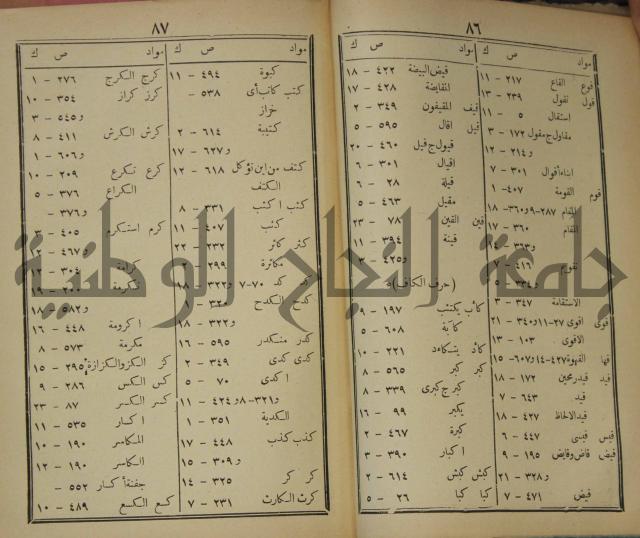 ٨٦
مواد ص ك
قوع القاع ٢١٧ - ١١
قول تقول ٢٣٩ - ١٣
استقال ٥ - ١١
مقاول ج مقول ١٧٢ - ٣
و ٢١٤ - ١٢
ابناء أقوال ٣٠١ - ٧
قوم القومة ٤٠٧ - ١
المقام ٢٨٧ - ٩ و ٣٦٠ - ١٨
المقام ٣٦٠ - ١٧
تقويم ٤١٦ - ٧
الاستقامة ٣٤٧ - ٣
قوى اقوى ٢٧ - ١١ و ٣٤٠ - ٢١
الاقوى ١٠٣ - ١٣
قها القهوة ٤٢٧ - ١٤ و ٦٠٧ - ١٥
قيد قيد رمحين ١٧٢ - ١٨
قيد ٦٤٣ - ٧
قيد الالحاظ ٤٢٧ - ١٨
قيس قيسى ٤٤٧ - ٦
قيض قاض وقايض ١٩٥ - ٩
و ٣٢٨ - ٢١
قيض ٤٧١ - ٧
مواد ص ك
قيض البيضة ٤٢٢ - ١٨
المقايضة ٤٢٨ - ١٧
قيف المقيفون ٣٤٩ - ٢
قيل اقال ٥٩٥ - ٥
قيول ج قيل ٤٦٠ - ٢٠
اقيال ٣٠١ - ٦
قيلة ٢٨ - ٦
مقيل ٤٦٣ - ٥
قين القين ٧٨ - ٢٣
قينة ٣٩٤ - ١١
و ٤٢٥ - ٣
(حرف الكاف)
كأب يكتئب ١٩٧ - ٩
كآبة ٦٠٨ - ٥
كأد يتكاءد ٢٢١ - ١٠
كبر كبر ٥٦٥ - ٨
كبر ج كبرى ٣٣٩ - ٨
يكبر ٩٩ - ١٦
كبرة ٤٦٧ - ٢
اكبار ٣٩٠ - ٣
كبش كبش ٦١٤ - ٢
كبا كبا ٢٦ - ٥
٨٧
مواد ص ك
كبوة ٤٩٤ - ١١
كتب كاتب أى ٥٣٨ -
خراز
كتيبة ٦١٤ - ٢
و ٦٢٧ - ١٧
كتف من اين تؤكل ٦١٨ - ١٢
الكتف
كثب اكثب ٣٣١ - ٨
كثب ٤٠٧ - ١١
كثر كاثر ٢٣٢ - ٢٢
مكاثرة ٢٩٩
كد كد ٧٠ - ٧ و ٣٢٢ - ١٨
كدح الكدح
و ٣٢٢ - ١٨
كدر منكدر ٥٩٥ - ١٦
كدى كدى ٣٤٩ - ٢
اكدى ٧٠ - ٥
و ٣٢١ - ٨ و ٤٢٤ - ١١
الكدية ٣٥١ - ١
كذب كذب ٤٤٨ - ١٧
و ٣٠٩ - ١٥
كر كر ٣٢٥ - ١٤
كرث الكارث ٢٣١ - ٧
مواد ص ك
كرج الكرج ٢٧٦ - ١
كرز كراز ٣٥٤ - ١٠
و ٥٤٥ - ٣
كرش الكرش ٤١١ - ٨
و ٦٠٦ - ١
كرع تكرع ٢٠٩ - ١٠
الكراع ٣٧٦ - ٥
و ٣٧٦ -
كرم استكرم ٤٠٥ - ٣
و ٤٦٧ - ١٢
كرامة ٣٠٤ - ١٢
تكرمة
و ٥٨٢ - ١٨
اكرومة ٤٤٨ - ١٦
مكرمة ٥٧٣ - ٨
كز الكز والكزازة ٢٩٥ - ١٥
كس الكس ٢٨٦ - ٩
كسر الكسر ٨٧ - ٢٣
اكسار ٥٣٥ - ١١
المكاسر ١٩٠ - ١٠
الكاسر ١٩٠ - ١٢
جفنة أكسار ٥٥٢ -
كسع الكسع ٤٨٩ - ١٠
جامعة النجاح الوطنية